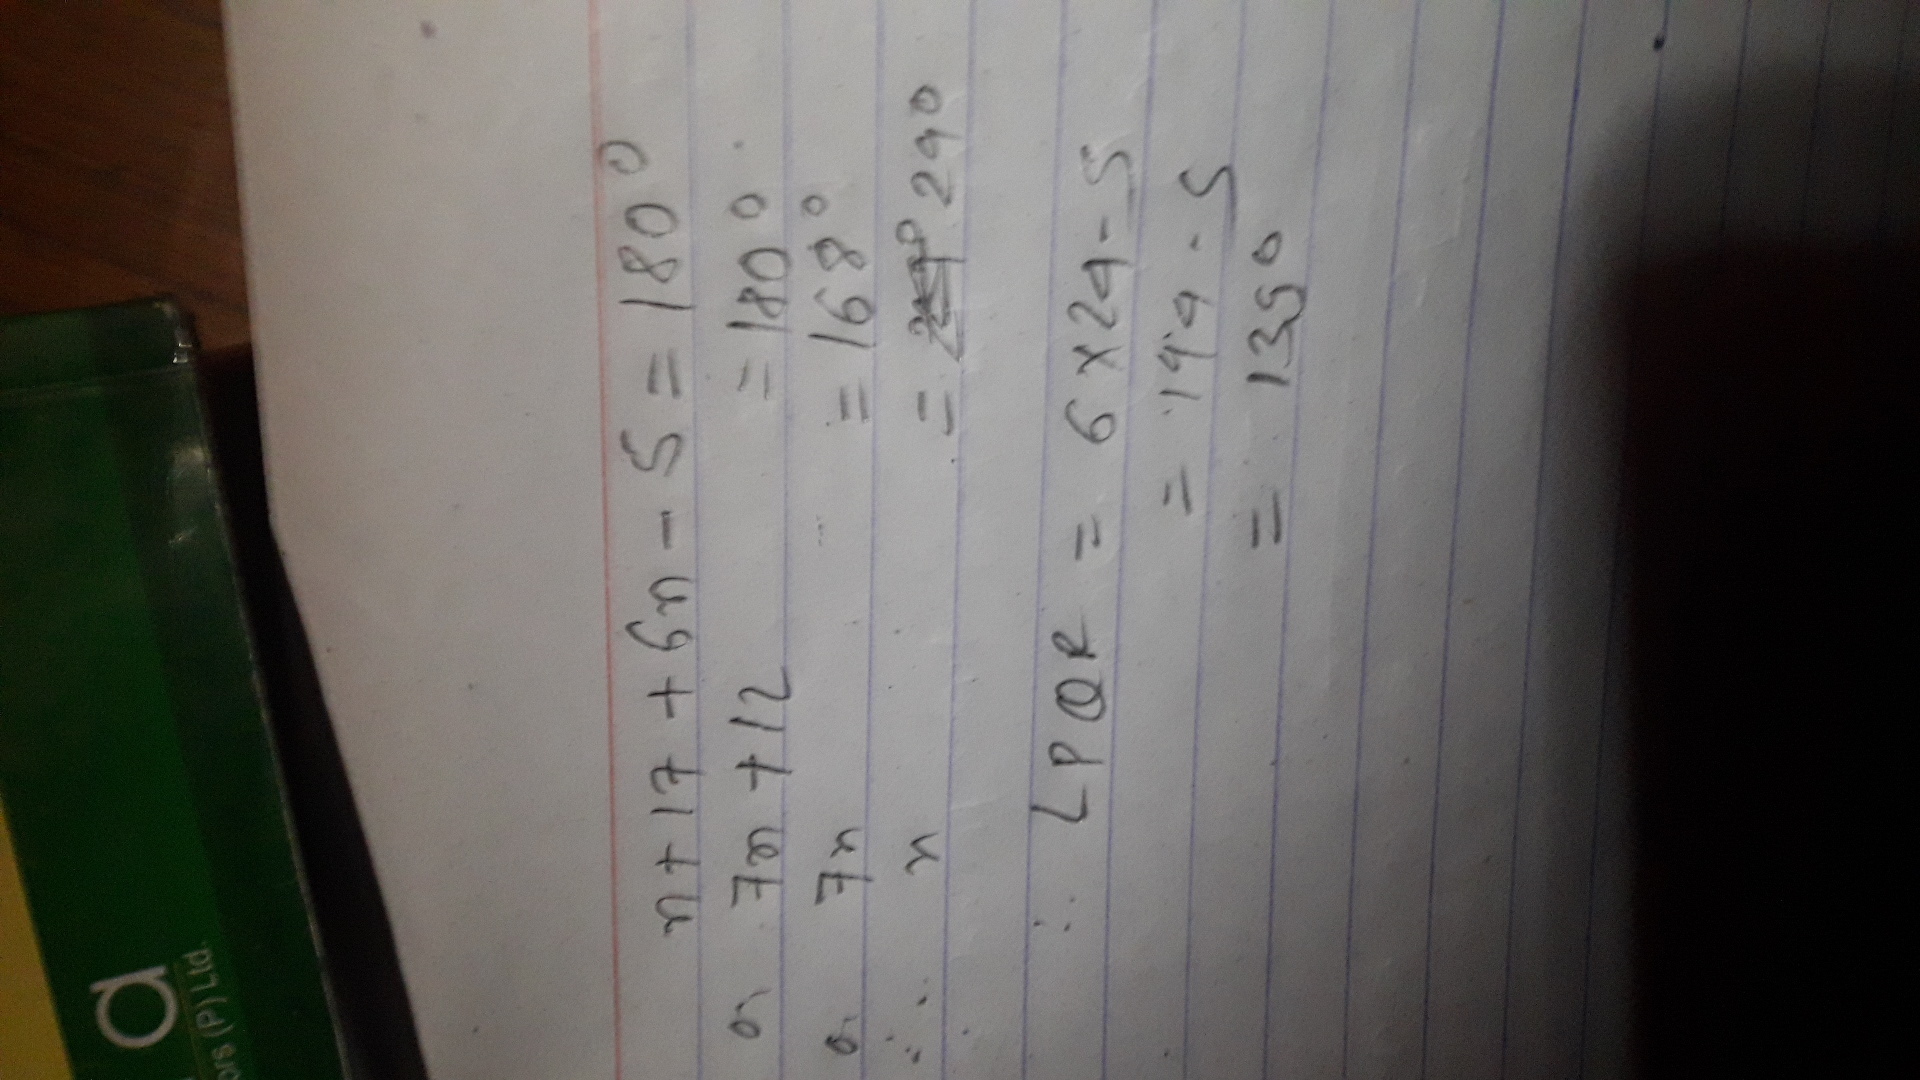 x + 17 + 6x - 5 = 180°
or, 7x + 12 = 180°
or, 7x = 168°
∴ x = 24°
∴ ∠PQR = 6 × 24 - 5
= 144 - 5
= 139°
a
ors (P) Ltd.